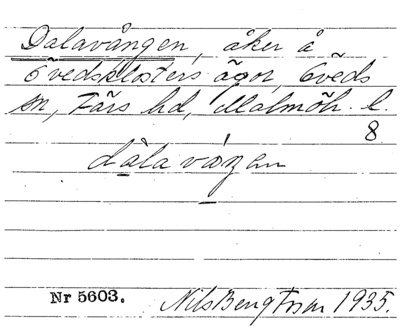 Dalavången, åker å
Övedsklosters ägor, Öveds
sn, Färs hd, Malmöh. l.
8
dàla váŋen
Nr 5603. Nils Bengtsson 1935.